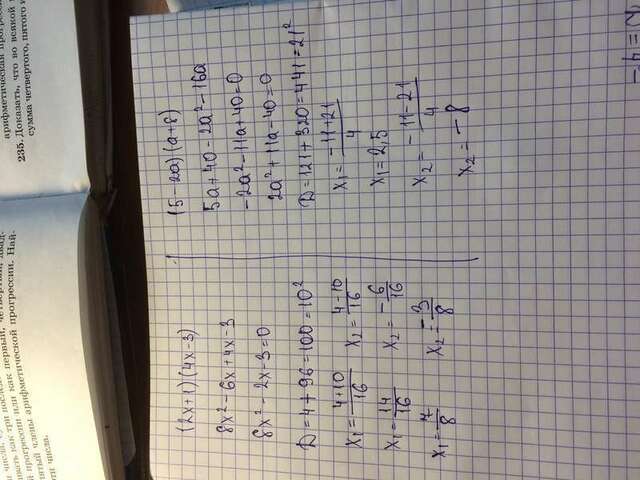 и числа,
вать как три послед
й прогрессии или как первый, четвертый, двад-
пятый члены арифметической прогрессии. Най-
ти числа.
арифметическая прогресси
235. Доказать, что во всякой
сумма четвертого, пятого и
(2x+1)(4x-3)
8x²-6x+4x-3
8x²-2x-3=0
D=4+96=100=10²
x₁=4+10/16 x₂=4-10/16
x₁=14/16 x₂=-6/16
x₁=7/8 x₂=-3/8
(5-2a)(a+8)
5a+40-2a²-16a
-2a²-11a+40=0
2a²+11a-40=0
D=121+320=441=21²
x₁=-11+21/4
x₁=2,5
x₂=-11-21/4
x₂=-8